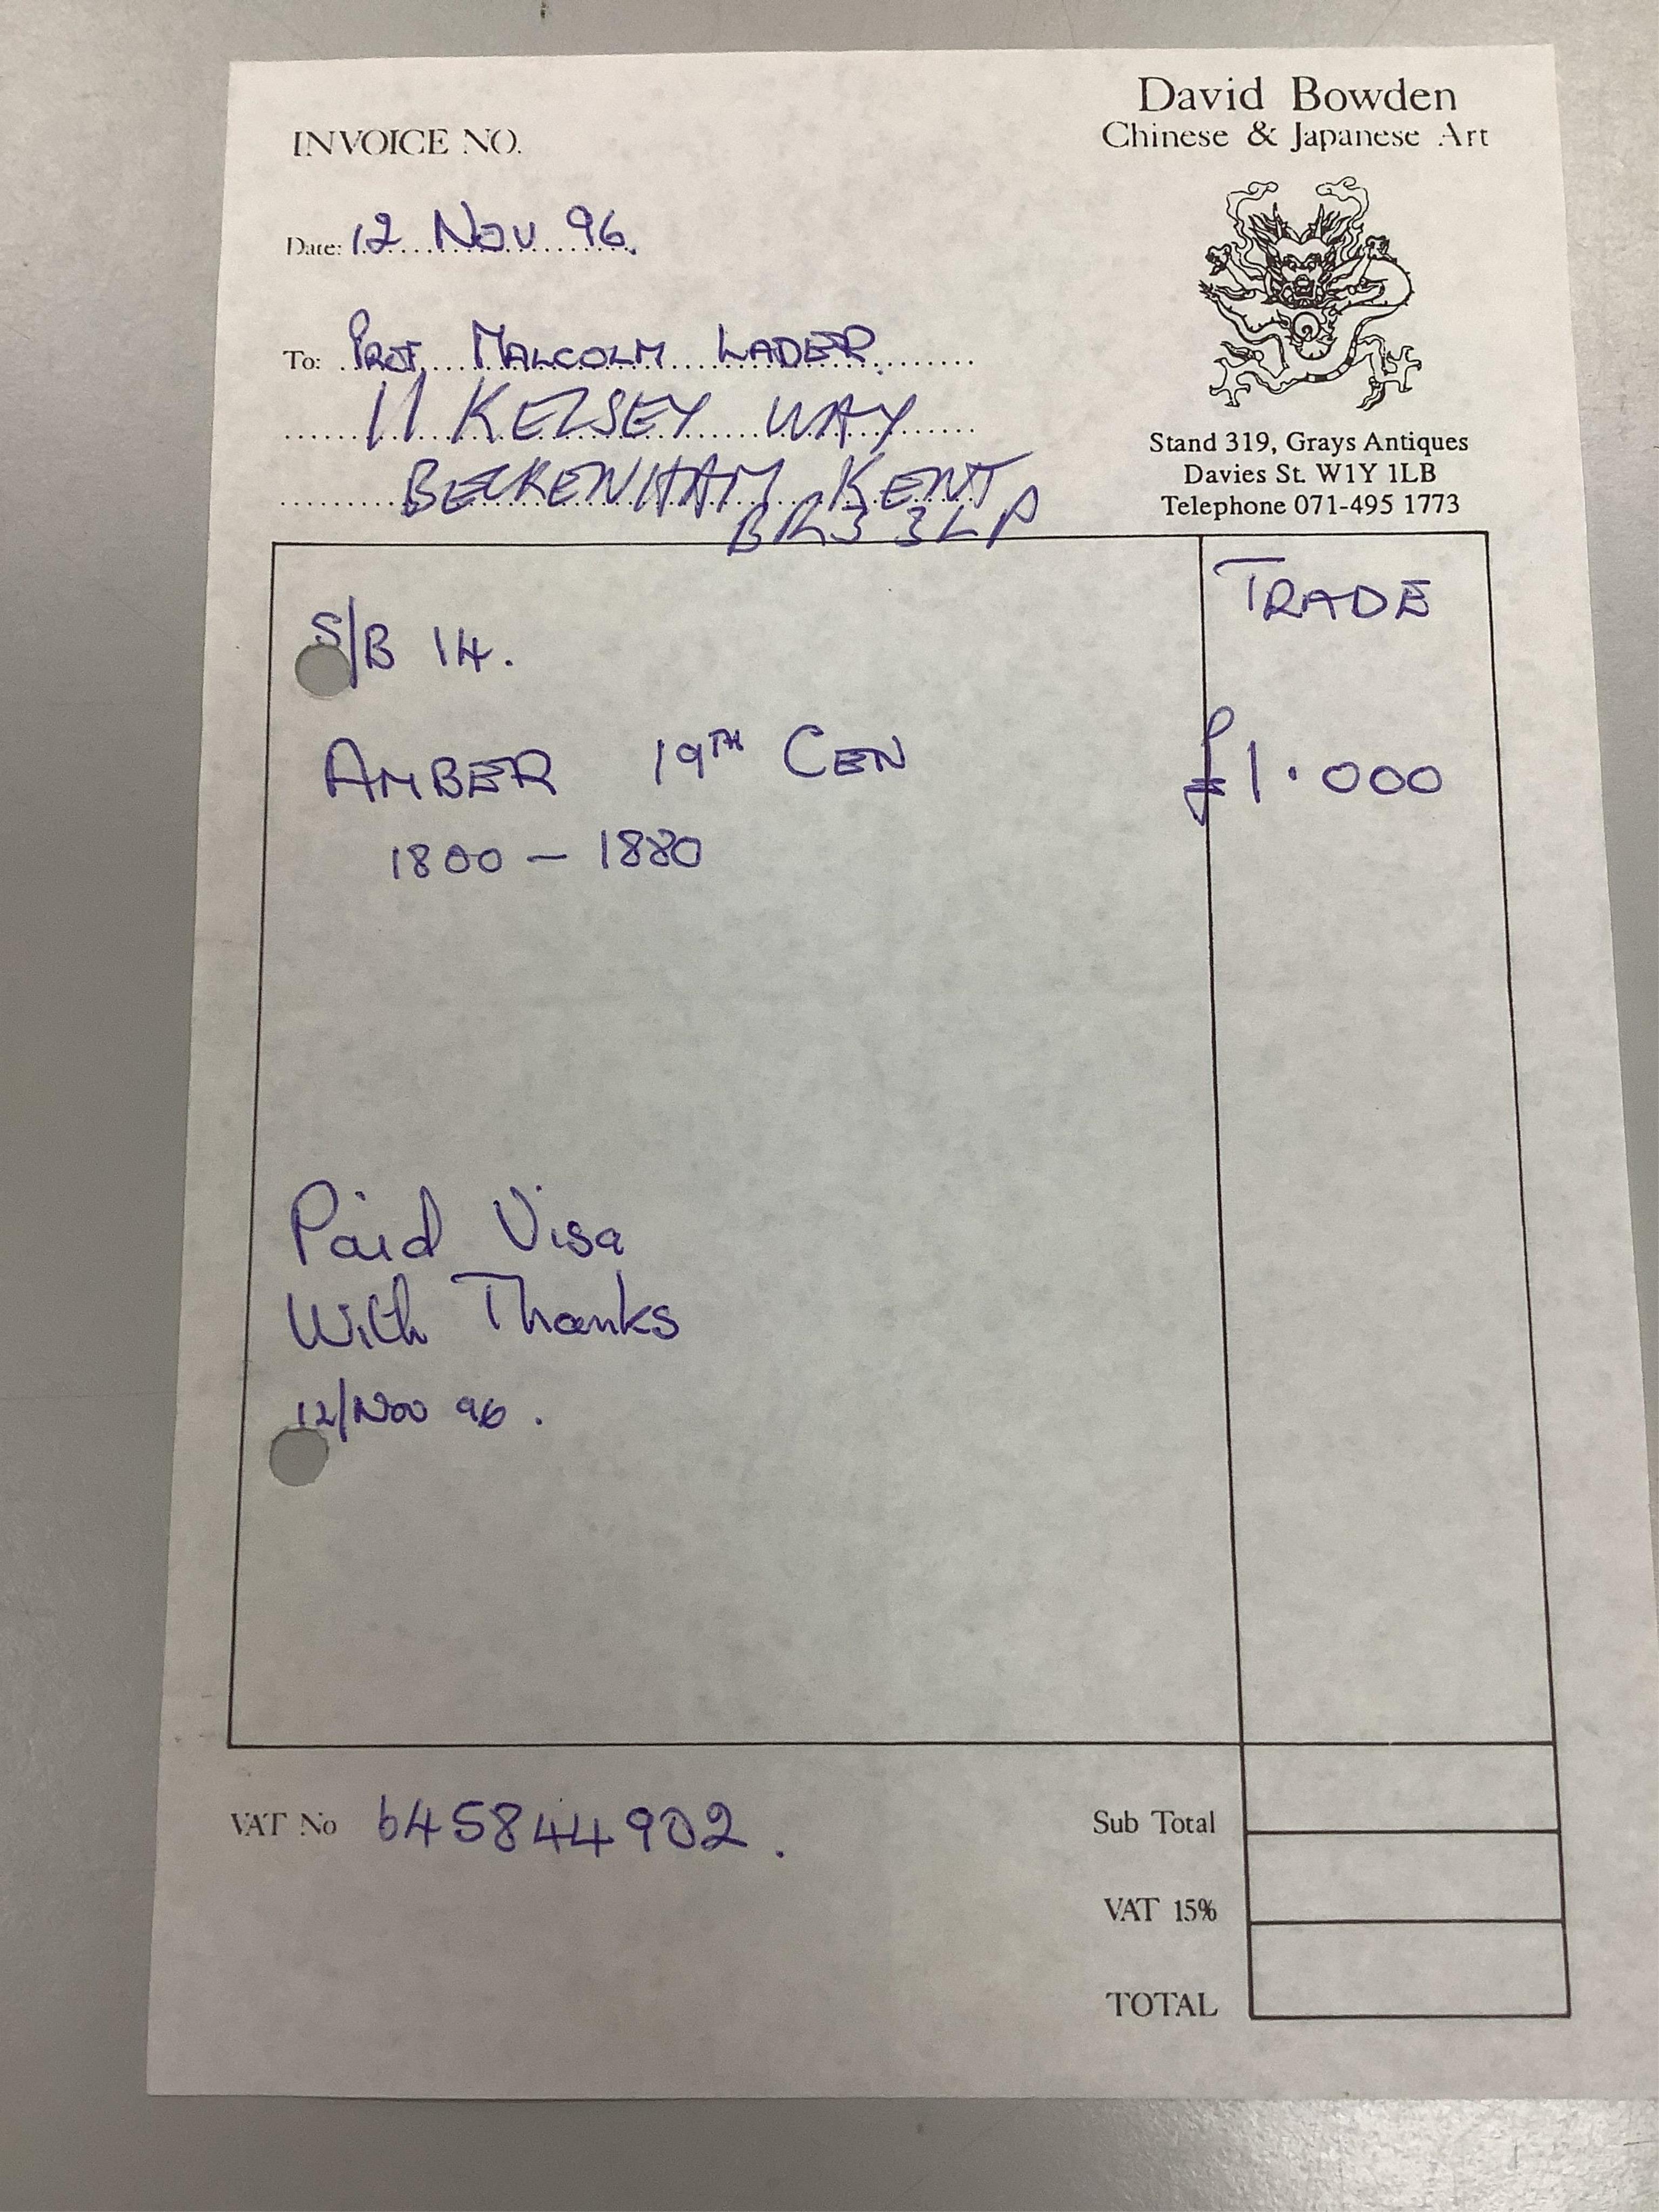 David Bowden
Chinese & Japanese Art
INVOICE NO.
Date: 12 Nov 96.
To: Prof. MALCOLM LADER.
11 KELSEY WAY
BECKENHAM KENT
BR3 3LP
Stand 319, Grays Antiques
Davies St. W1Y 1LB
Telephone 071-495 1773
TRADE
S/B 14.
AMBER 19TH CEN £1.000
1800 – 1880
Paid Visa
With Thanks
12/Nov 96.
VAT No 645844902.
Sub Total
VAT 15%
TOTAL